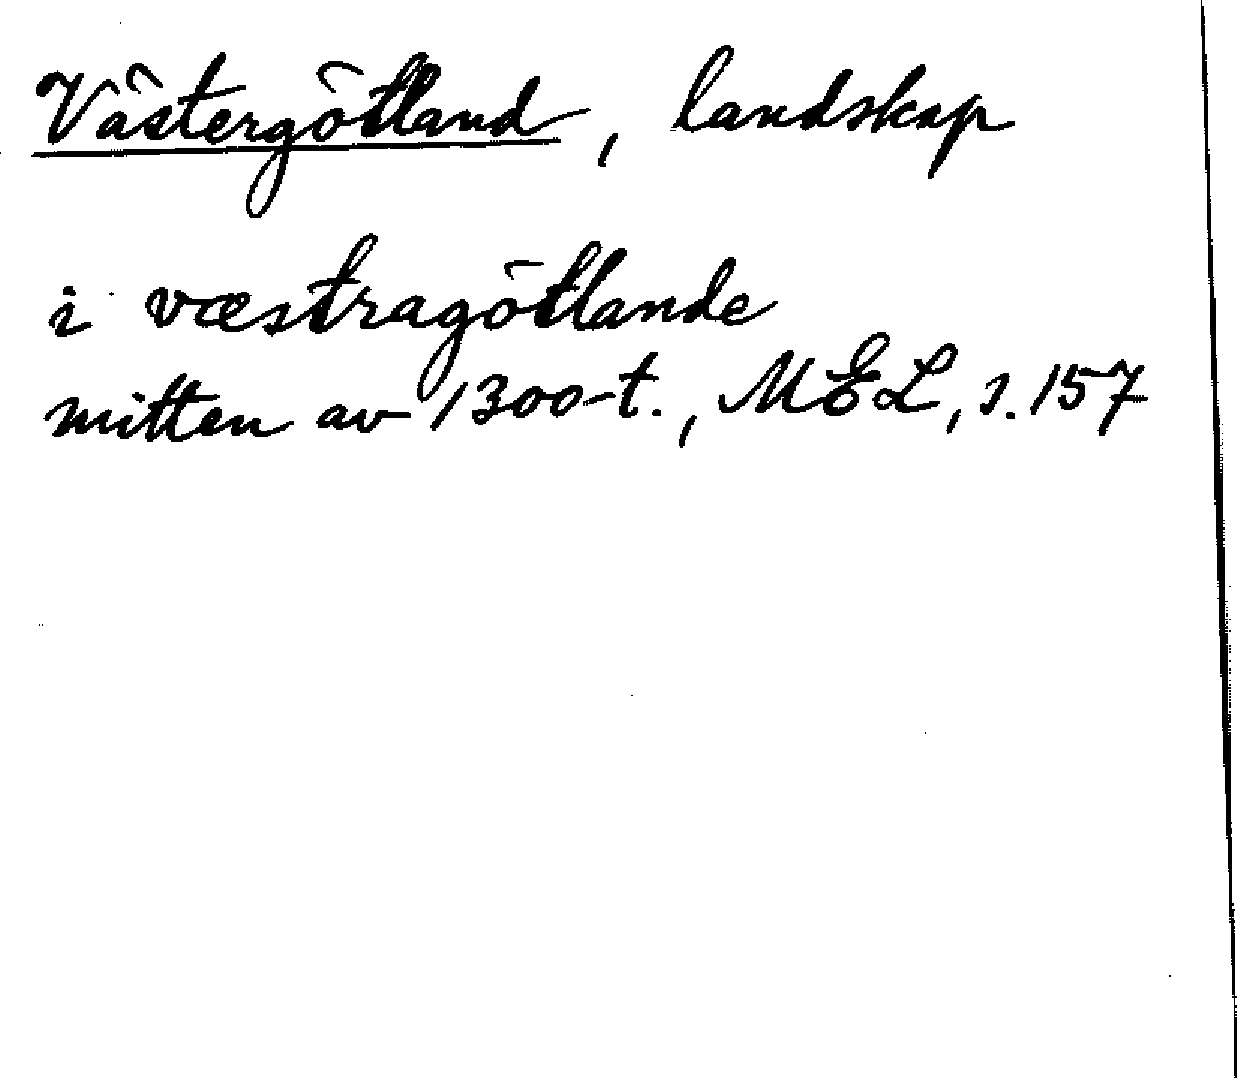 Västergötland, landskap
i væstragötlande
mitten av 1300-t., MEL, s. 157